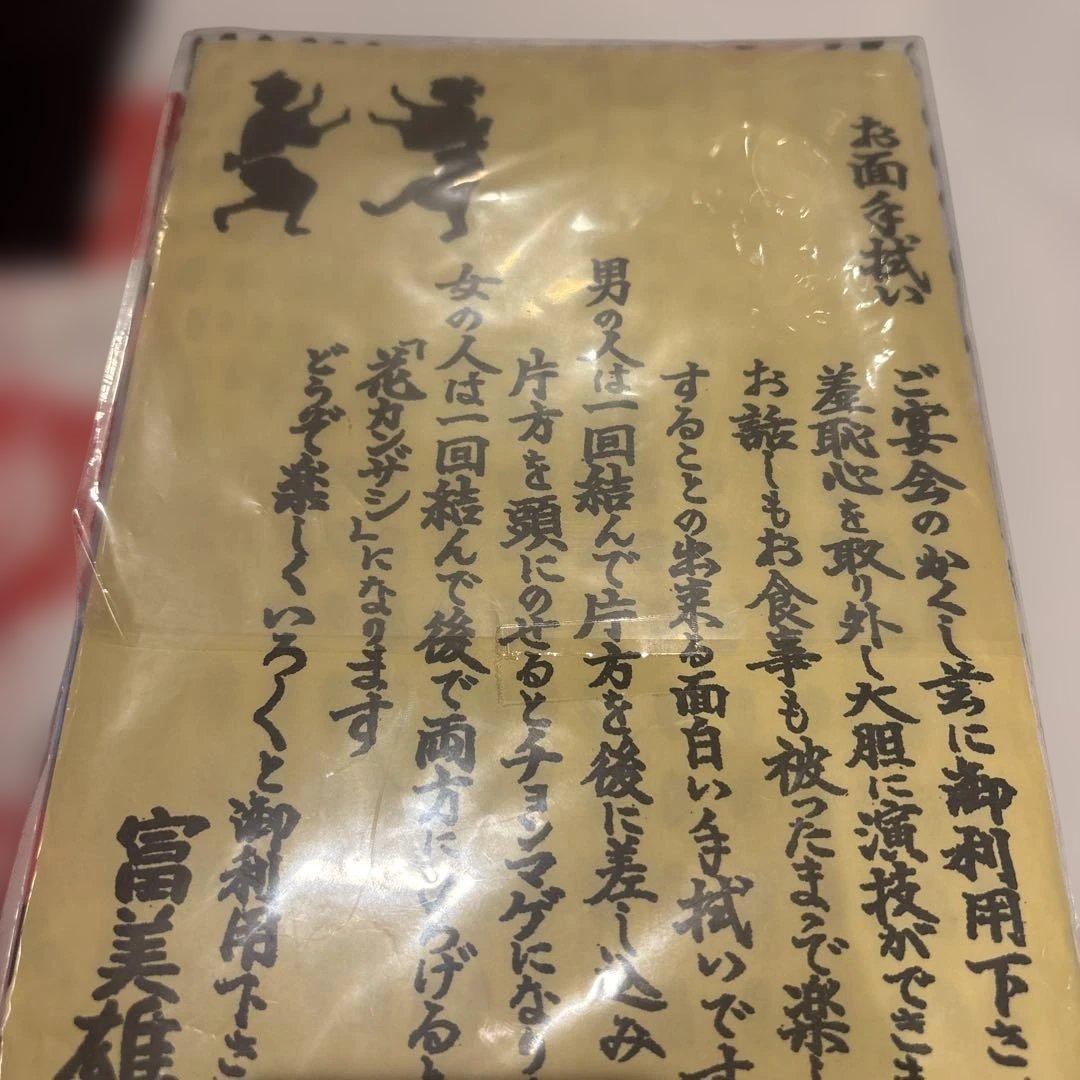 お面手拭い
ご宴会のかくし芸に御利用下さ
羞恥心を取り外し大胆に演技ができま
お話しもお食事も被ったままで楽し
することの出来る面白い手拭いです
男の人は一回結んで片方を後に差し込み
片方を頭にのせるとチョンマゲになり
女の人は一回結んで後で両方に つげると
「花カンザシ」になります
どうぞ楽しくいろ〱と御利用下さ
富美雄